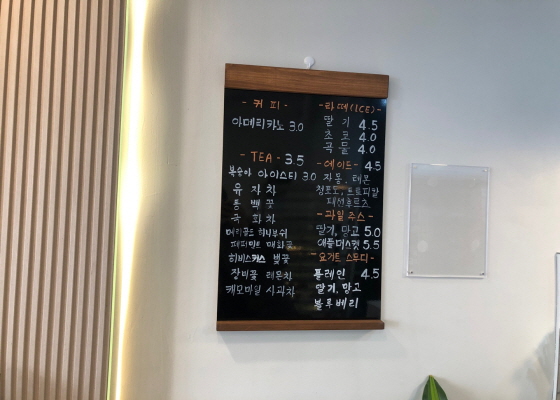 - 커 피 -
아메리카노 3.0
- TEA - 3.5
복숭아 아이스티 3.0
유 자 차
동 백 꽃
국 화 차
메리골드 히비부쉬
페퍼민트 매화꽃
히비스커스 벚꽃
장미꽃 레몬차
케모마일 사과차
- 라떼(ICE) -
딸 기 4.5
초 코 4.0
곡 물 4.0
- 에이드 - 4.5
자몽. 레몬
청포도. 트로피칼
패션후르츠
- 과일 주스 -
딸기, 망고 5.0
애플머스켓 5.5
- 요거트 스무디 -
플레인 4.5
딸기, 망고
블루베리